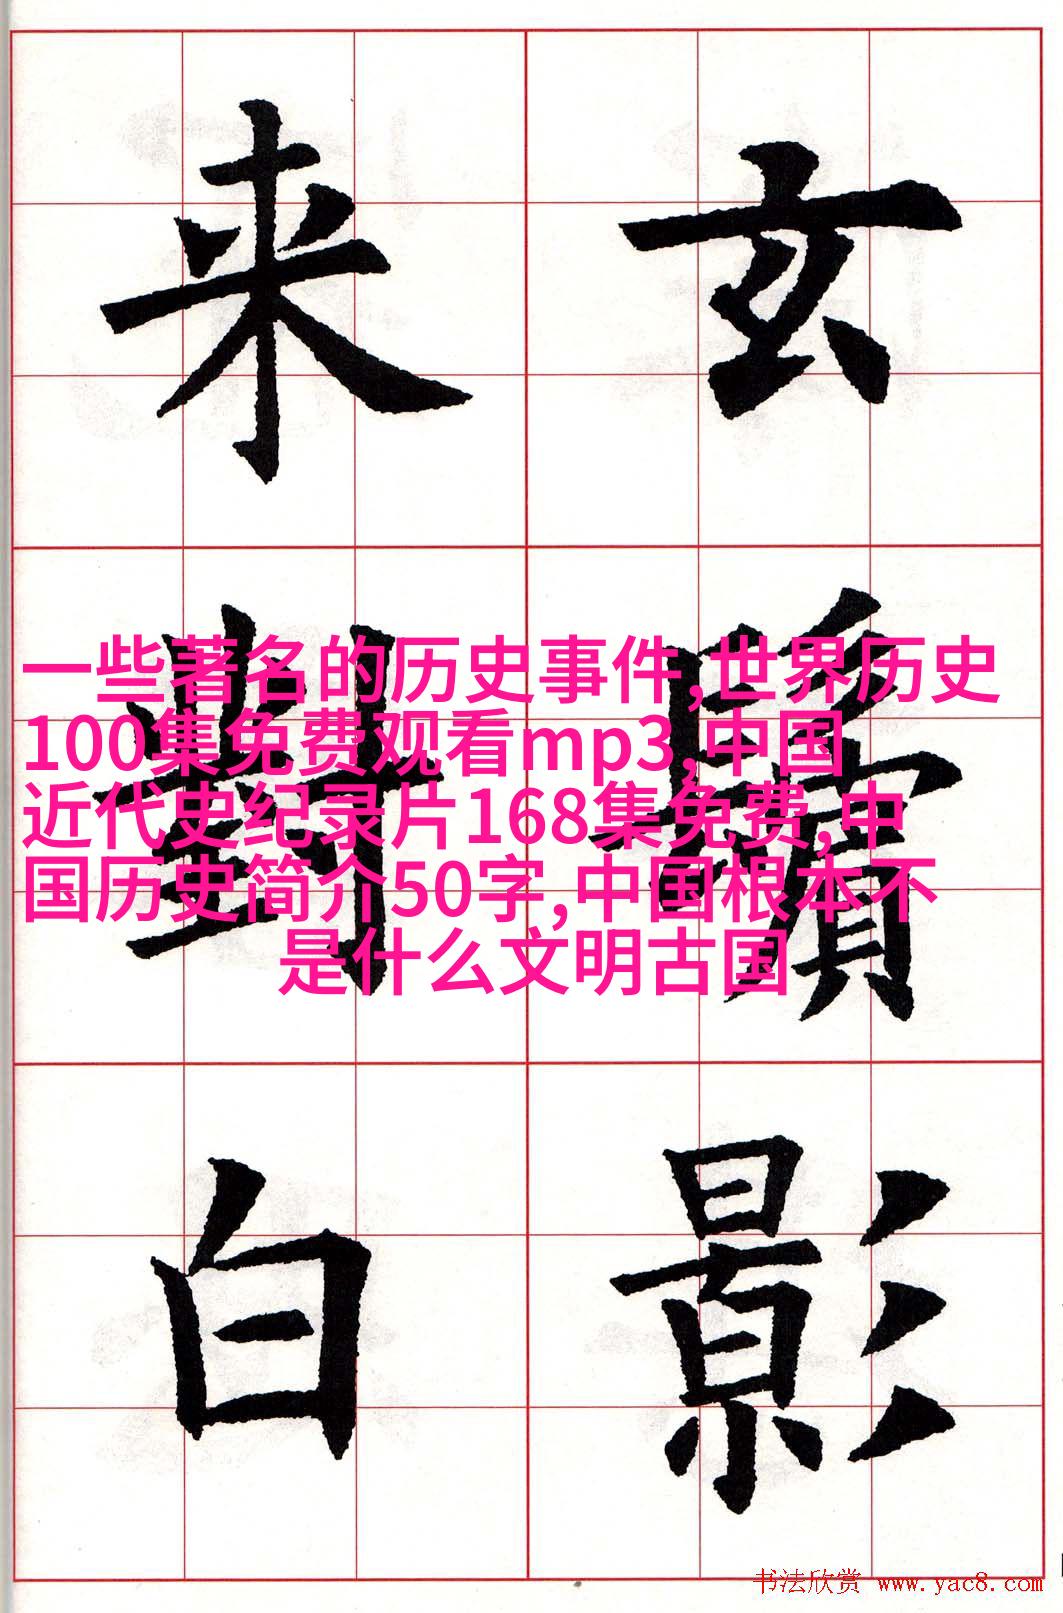 玄鬢影
来對白
一些著名的历史事件,世界历史
100集免费观看mp3,中国
近代史纪录片168集免费,中
国历史简介50字,中国根本不
是什么文明古国
书法欣赏 www.yac8.com